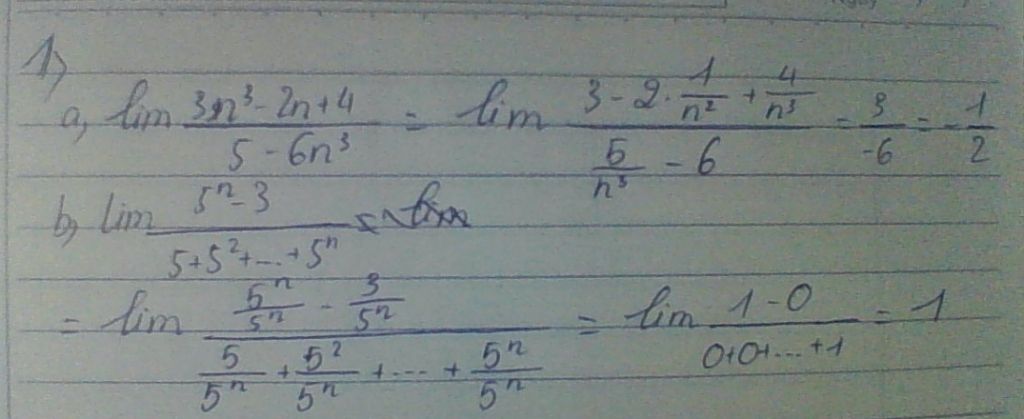 1)
a, lim (3n³ - 2n + 4)/(5 - 6n³) = lim (3 - 2 · 1/n² + 4/n³)/(5/n³ - 6) = 3/-6 = -1/2
b, lim (5ⁿ - 3)/(5 + 5² + ... + 5ⁿ)
= lim (5ⁿ/5ⁿ - 3/5ⁿ)/(5/5ⁿ + 5²/5ⁿ + .... + 5ⁿ/5ⁿ) = lim (1 - 0)/(0+0+...+1) = 1